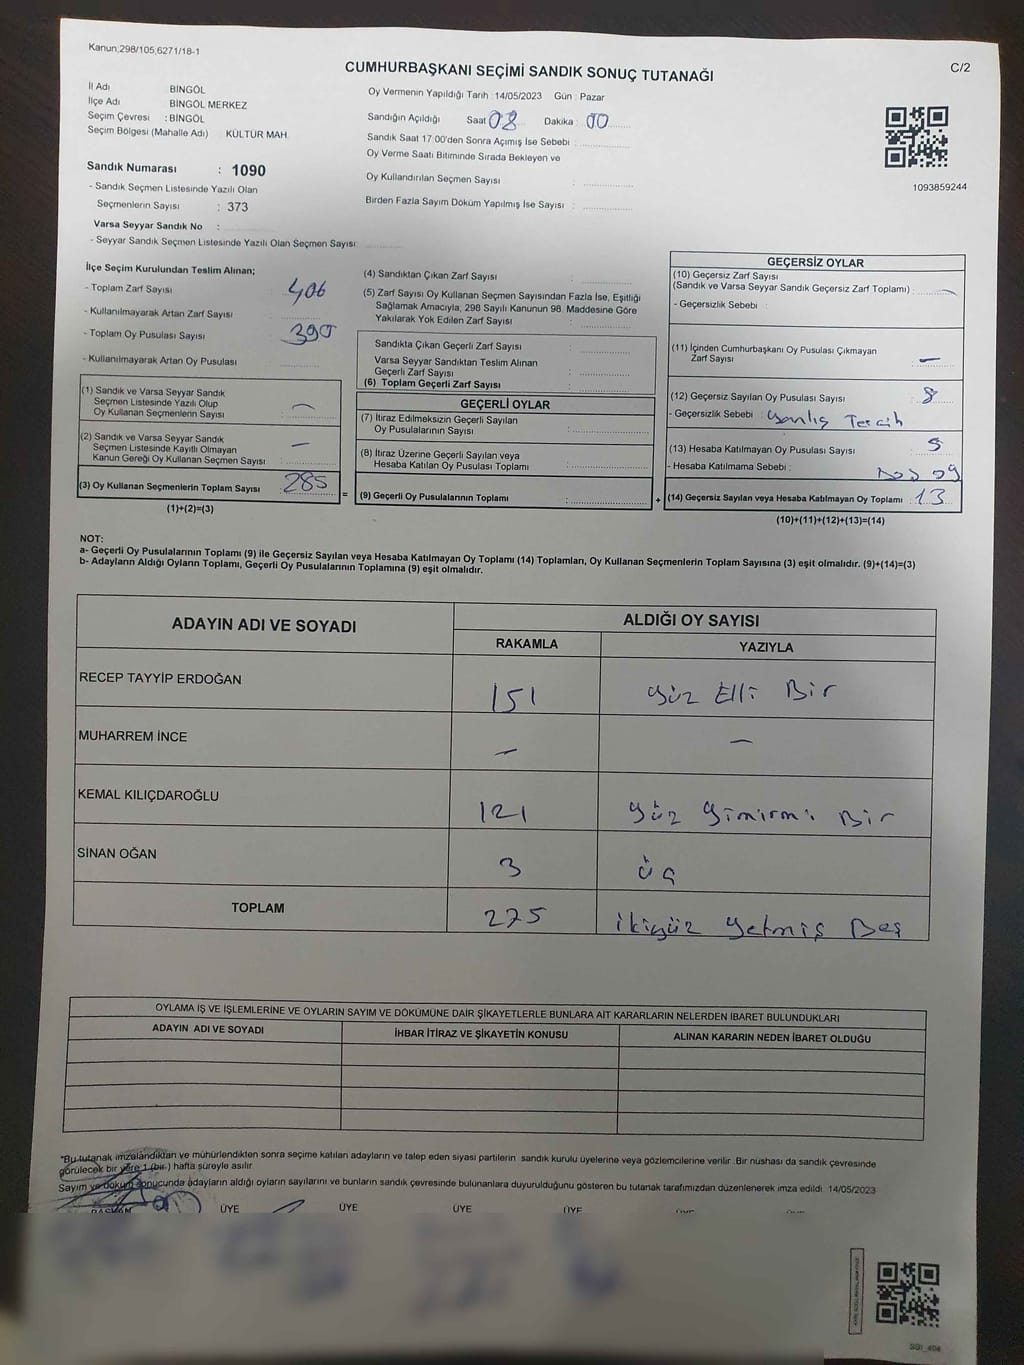 Kanun;298/105,6271/18-1
C/2
CUMHURBAŞKANI SEÇİMİ SANDIK SONUÇ TUTANAĞI
İl Adı BİNGÖL
İlçe Adı BİNGÖL MERKEZ
Seçim Çevresi : BİNGÖL
Seçim Bölgesi (Mahalle Adı) KÜLTÜR MAH.
Oy Vermenin Yapıldığı Tarih : 14/05/2023 Gün : Pazar
Sandığın Açıldığı Saat 08 Dakika : 00
Sandık Saat 17:00'den Sonra Açımış İse Sebebi :
Oy Verme Saati Bitiminde Sırada Bekleyen ve
Oy Kullandırılan Seçmen Sayısı :
Birden Fazla Sayım Döküm Yapılmış İse Sayısı :
1093859244
Sandık Numarası : 1090
- Sandık Seçmen Listesinde Yazılı Olan
Seçmenlerin Sayısı : 373
Varsa Seyyar Sandık No :
- Seyyar Sandık Seçmen Listesinde Yazılı Olan Seçmen Sayısı:
İlçe Seçim Kurulundan Teslim Alınan;
- Toplam Zarf Sayısı : 406
- Kullanılmayarak Artan Zarf Sayısı :
- Toplam Oy Pusulası Sayısı : 390
- Kullanılmayarak Artan Oy Pusulası
(1) Sandık ve Varsa Seyyar Sandık
Seçmen Listesinde Yazılı Olup
Oy Kullanan Seçmenlerin Sayısı : —
(2) Sandık ve Varsa Seyyar Sandık
Seçmen Listesinde Kayıtlı Olmayan
Kanun Gereği Oy Kullanan Seçmen Sayısı : —
(3) Oy Kullanan Seçmenlerin Toplam Sayısı : 285
(1)+(2)=(3)
(4) Sandıktan Çıkan Zarf Sayısı :
(5) Zarf Sayısı Oy Kullanan Seçmen Sayısından Fazla İse, Eşitliği
Sağlamak Amacıyla, 298 Sayılı Kanunun 98. Maddesine Göre
Yakılarak Yok Edilen Zarf Sayısı :
Sandıkta Çıkan Geçerli Zarf Sayısı :
Varsa Seyyar Sandıktan Teslim Alınan
Geçerli Zarf Sayısı :
(6) Toplam Geçerli Zarf Sayısı :
GEÇERLİ OYLAR
(7) İtiraz Edilmeksizin Geçerli Sayılan
Oy Pusulalarının Sayısı :
(8) İtiraz Üzerine Geçerli Sayılan veya
Hesaba Katılan Oy Pusulası Toplamı :
= (9) Geçerli Oy Pusulalarının Toplamı :
GEÇERSİZ OYLAR
(10) Geçersiz Zarf Sayısı
(Sandık ve Varsa Seyyar Sandık Geçersiz Zarf Toplamı) : —
- Geçersizlik Sebebi :
(11) İçinden Cumhurbaşkanı Oy Pusulası Çıkmayan
Zarf Sayısı : —
(12) Geçersiz Sayılan Oy Pusulası Sayısı : 8
- Geçersizlik Sebebi : Yanlış Tercih
(13) Hesaba Katılmayan Oy Pusulası Sayısı : 5
- Hesaba Katılmama Sebebi : Boş oy
+ (14) Geçersiz Sayılan veya Hesaba Katılmayan Oy Toplamı : 13
(10)+(11)+(12)+(13)=(14)
NOT:
a- Geçerli Oy Pusulalarının Toplamı (9) ile Geçersiz Sayılan veya Hesaba Katılmayan Oy Toplamı (14) Toplamları, Oy Kullanan Seçmenlerin Toplam Sayısına (3) eşit olmalıdır. (9)+(14)=(3)
b- Adayların Aldığı Oyların Toplamı, Geçerli Oy Pusulalarının Toplamına (9) eşit olmalıdır.
ADAYIN ADI VE SOYADI ALDIĞI OY SAYISI
RAKAMLA YAZIYLA
RECEP TAYYİP ERDOĞAN 151 Yüz Elli Bir
MUHARREM İNCE — —
KEMAL KILIÇDAROĞLU 121 Yüz Yimirmi Bir
SİNAN OĞAN 3 üç
TOPLAM 275 ikiyüz Yetmiş Beş
OYLAMA İŞ VE İŞLEMLERİNE VE OYLARIN SAYIM VE DÖKÜMÜNE DAİR ŞİKAYETLERLE BUNLARA AİT KARARLARIN NELERDEN İBARET BULUNDUKLARI
ADAYIN ADI VE SOYADI İHBAR İTİRAZ VE ŞİKAYETİN KONUSU ALINAN KARARIN NEDEN İBARET OLDUĞU
*Bu tutanak imzalandıktan ve mühürlendikten sonra seçime katılan adayların ve talep eden siyasi partilerin sandık kurulu üyelerine veya gözlemcilerine verilir. Bir nüshası da sandık çevresinde
görülecek bir yere 1 (bir ) hafta süreyle asılır.
Sayım ve döküm sonucunda adayların aldığı oyların sayılarını ve bunların sandık çevresinde bulunanlara duyurulduğunu gösteren bu tutanak tarafımızdan düzenlenerek imza edildi. 14/05/2023
BAŞKAN ÜYE ÜYE ÜYE ÜYE